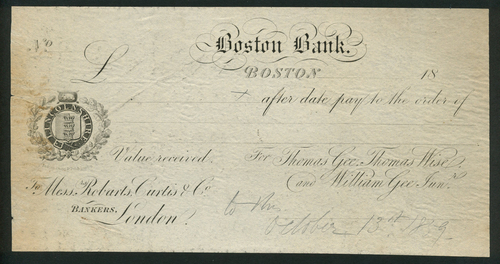 Boston Bank.
No
£ BOSTON 18
after date pay to the order of
LINCOLNSHIRE
Value received. For Thomas Gee, Thomas Wise,
To Messrs. Robarts, Curtis & Co. (and William Gee Junr.
BANKERS,
London.
October 13th